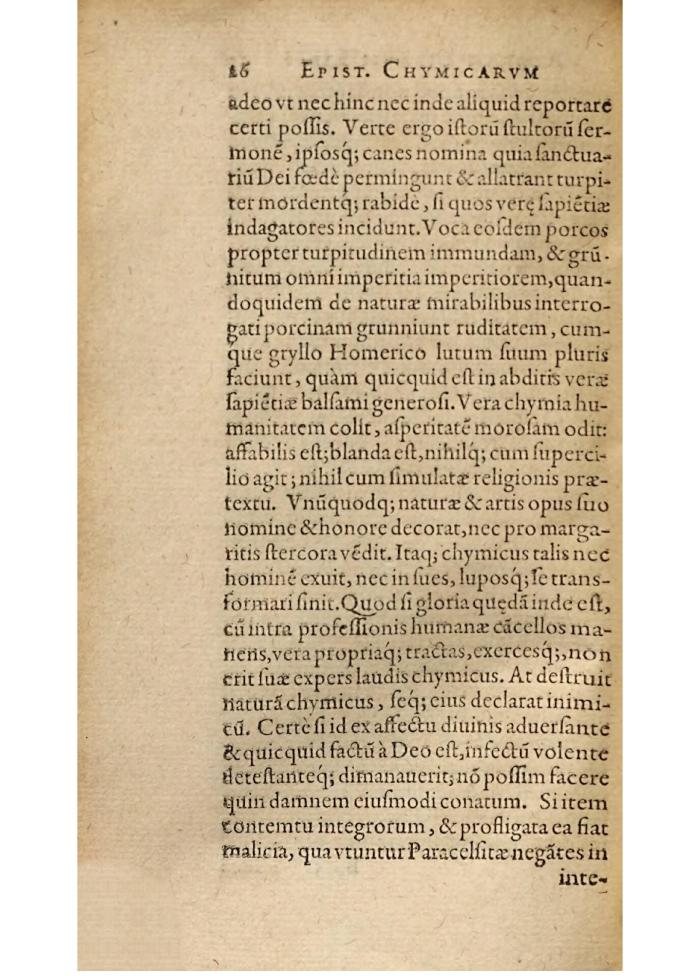 26 EPIST. CHYMICARVM
adeo vt nec hinc nec inde aliquid reportare
certi poſſis. Verte ergo iſtorũ ſtultorũ ſer-
monẽ, ipſosq́; canes nomina quia ſanctua-
riũ Dei fœdè permingunt & allatrant turpi-
ter mordentq́; rabidè, ſi quos verę ſapiẽtiæ
indagatores incidunt. Voca eoſdem porcos
propter turpitudinem immundam, & grũ-
nitum omni imperitia imperitiorem, quan-
doquidem de naturæ mirabilibus interro-
gati porcinam grunniunt ruditatem, cum-
que gryllo Homerico lutum ſuum pluris
faciunt, quàm quicquid eſt in abditis veræ
ſapiẽtiæ balſami generoſi. Vera chymia hu-
manitatem colit, aſperitatẽ moroſam odit:
affabilis eſt; blanda eſt, nihilq́; cum ſuperci-
lio agit; nihil cum ſimulatæ religionis præ-
textu. Vnũquodq; naturæ & artis opus ſuo
nomine & honore decorat, nec pro marga-
ritis ſtercora vẽdit. Itaq; chymicus talis nec
hominẽ exuit, nec in ſues, luposq́; ſe trans-
formari ſinit. Quod ſi gloria quędã inde eſt,
cũ intra profeſſionis humanæ cãcellos ma-
nens, vera propriaq́; tractas, exercesq́;, non
erit ſuæ expers laudis chymicus. At deſtruit
naturã chymicus, ſeq́; eius declarat inimi-
cũ. Certè ſi id ex affectu diuinis aduerſante
& quicquid factũ à Deo eſt, infectũ volente
deteſtanteq́; dimanauerit; nõ poſſim facere
quin damnem eiuſmodi conatum. Si item
contemtu integrorum, & profligata ea fiat
malicia, qua vtuntur Paracelſitæ negãtes in
inte-